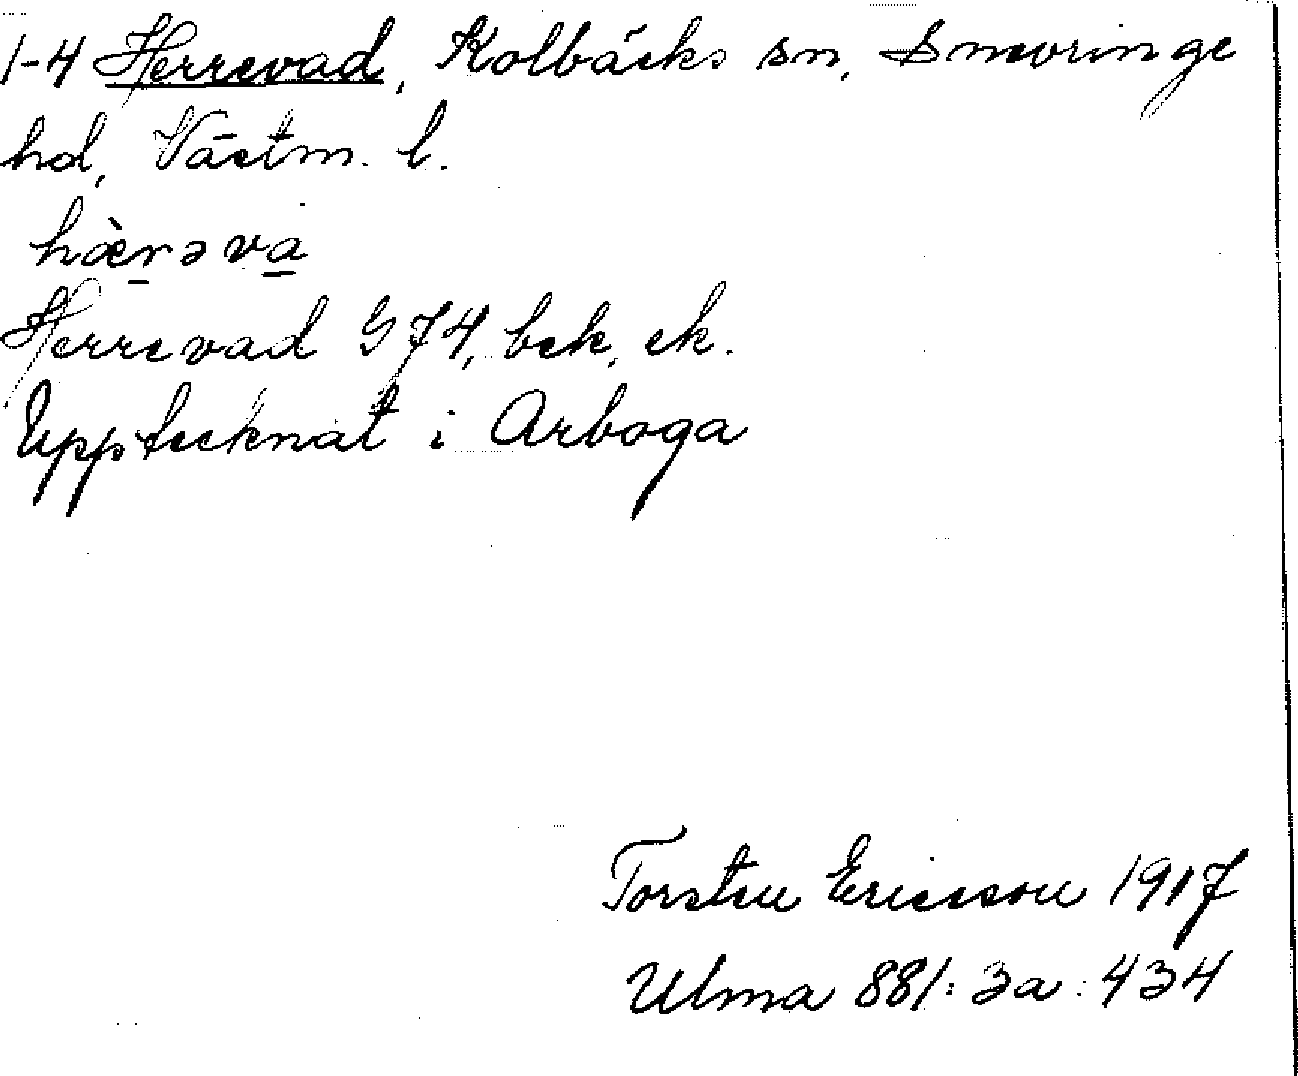 1-4 Herrevad, Kolbäcks sn, Snevringe
hd, Västm. l.
hæ̀rəva
Herrevad G74, bek, ek.
Upptecknat i Arboga
Torsten Ericsson 1917
Ulma 881:3a:434